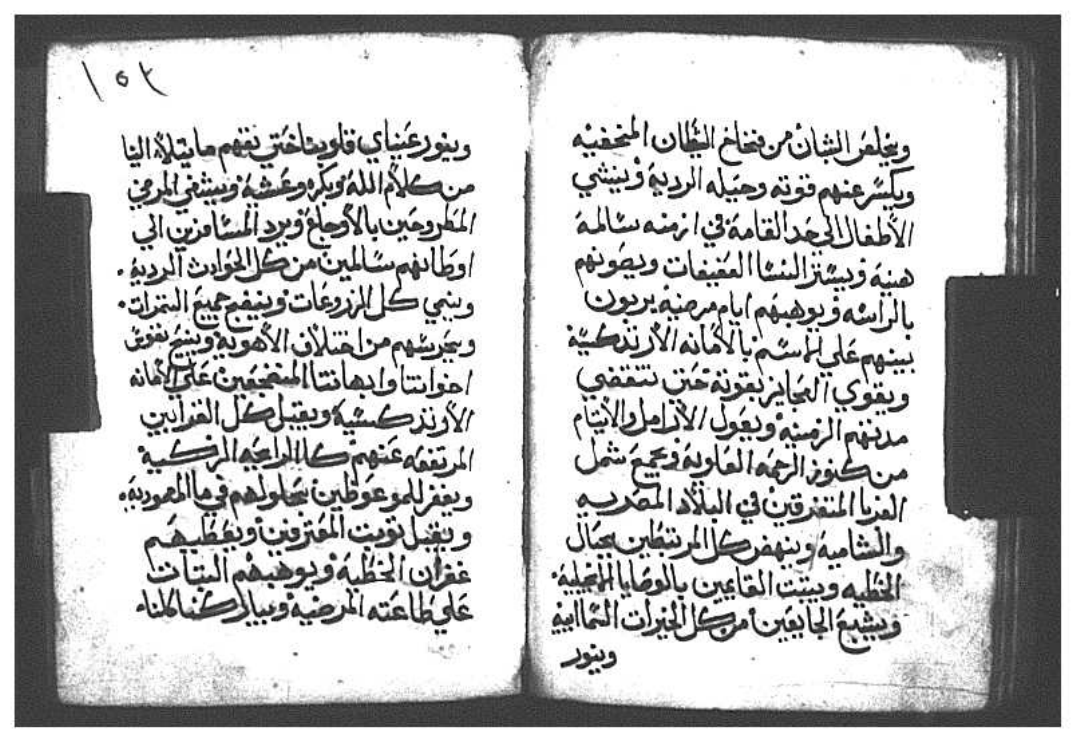 ويخلص الشبان من فخاخ الشيطان المخفيه
ويكسر عنهم قوته وحيله الرديه وينشي
الأطفال الي حد القامه في ازمنه سالمه
هنيه ويستر النسا العفيفات ويصونهم
بالراسه ويوهبهم ايام مرضيه يربون
بينهم علي اسم بالأمانه الأرتدكسيه
ويقوي العجايز بقوته حتي تنقضي
مدتهم الزمنيه ويعول الأرامل والأيتام
من كنوز الرحمه العلويه ويجمع شمل
الغربا المتفرقين في البلاد المصريه
والشاميه وينهض كل المرتبطين بحبال
الخطيه ويتبت القايمين بالوصايا الانجيليه.
ويشبع الجايعين من كل الخيرات السماييه
وينور
١٥٢
وينور عيناي قلوبنا حتي نفهم ما يتلاه الينا
من كلام الله بكره وعشيه ويشفي المرضي
المطروحين بالأوجاع ويرد المسافرين الي
اوطانهم سالمين من كل الحوادث الرديه.
وينمي كل الزروعات وينضج جميع التمرات.
ويحرسهم من اختلاف الأهويه وينيح نفوس
اخواتنا وابهاتنا المضجعين علي الأمانه
الأرتدكسيه ويقبل كل القرابين
المرتفعه عنهم كالرايحه الزكيه
ويغفر للموعوظين بحلولهم في ما المعموديه.
ويقبل توبت المعترفين ويعطيهم
غفران الخطيه ويوهبهم التبات
علي طاعته المرضيه ويبارك كنا كلنا